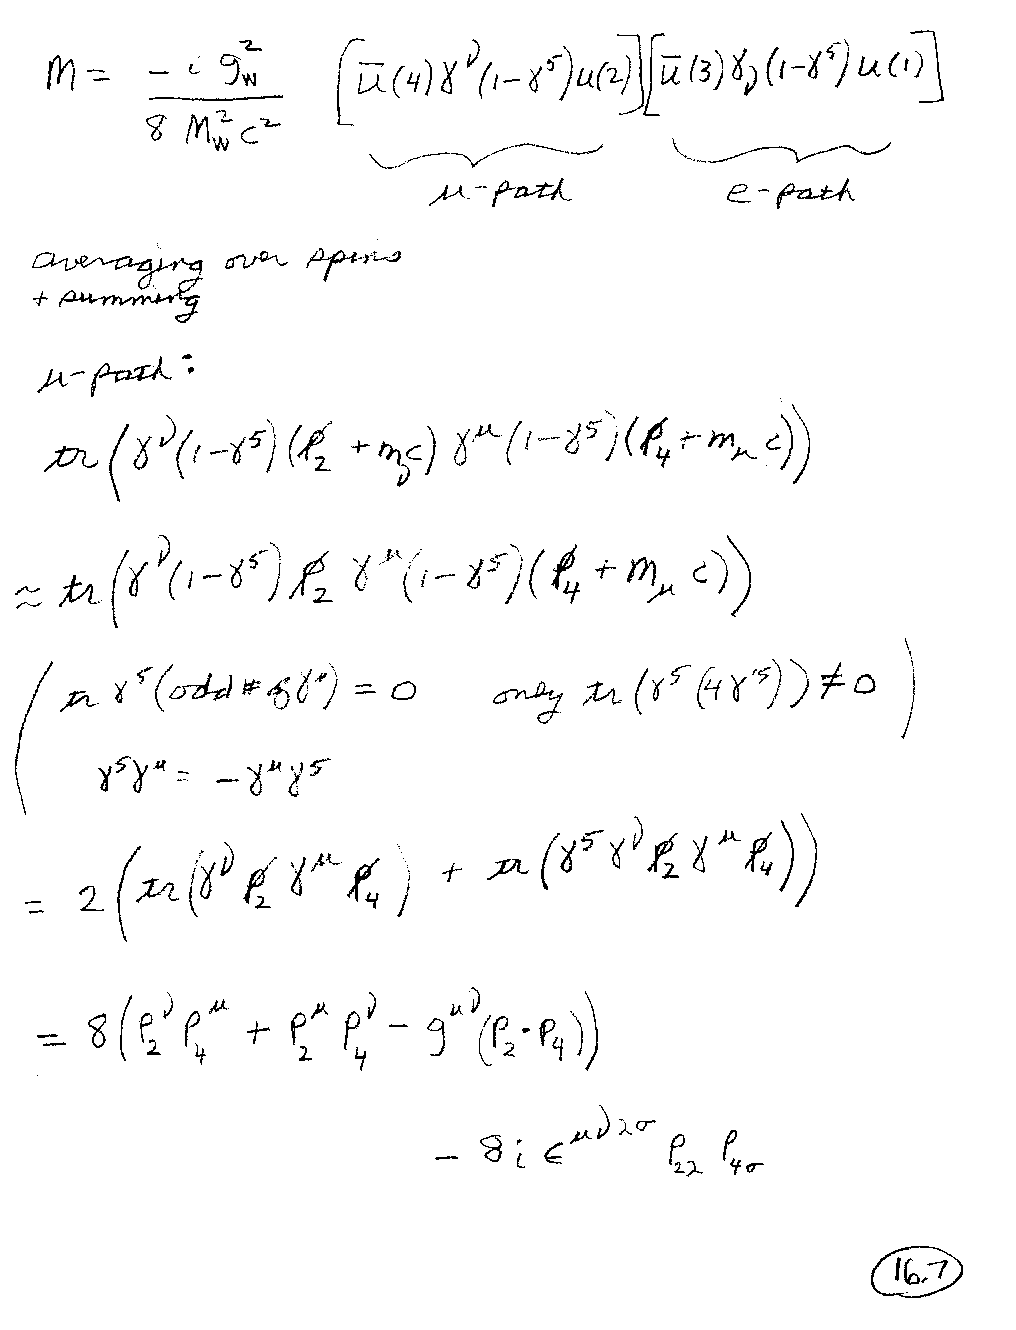 M = -i g_W^2 / 8 M_W^2 c^2 [ū(4)γ^ν(1-γ^5)u(2)][ū(3)γ_ν(1-γ^5)u(1)]
μ-path e-path
averaging over spins
+ summing
μ-path:
tr(γ^ν(1-γ^5)(p̸_2 + m_ν c)γ^μ(1-γ^5)(p̸_4 + m_μ c))
≈ tr(γ^ν(1-γ^5)p̸_2 γ^μ(1-γ^5)(p̸_4 + m_μ c))
(tr γ^5(odd # of γ^μ) = 0 only tr(γ^5(4γ's)) ≠ 0)
γ^5γ^μ = -γ^μγ^5
= 2(tr(γ^ν p̸_2 γ^μ p̸_4) + tr(γ^5γ^ν p̸_2 γ^μ p̸_4))
= 8(p_2^ν p_4^μ + p_2^μ p_4^ν - g^{μν}(p_2·p_4))
- 8i ε^{μνλσ} p_{2λ} p_{4σ}
16.7